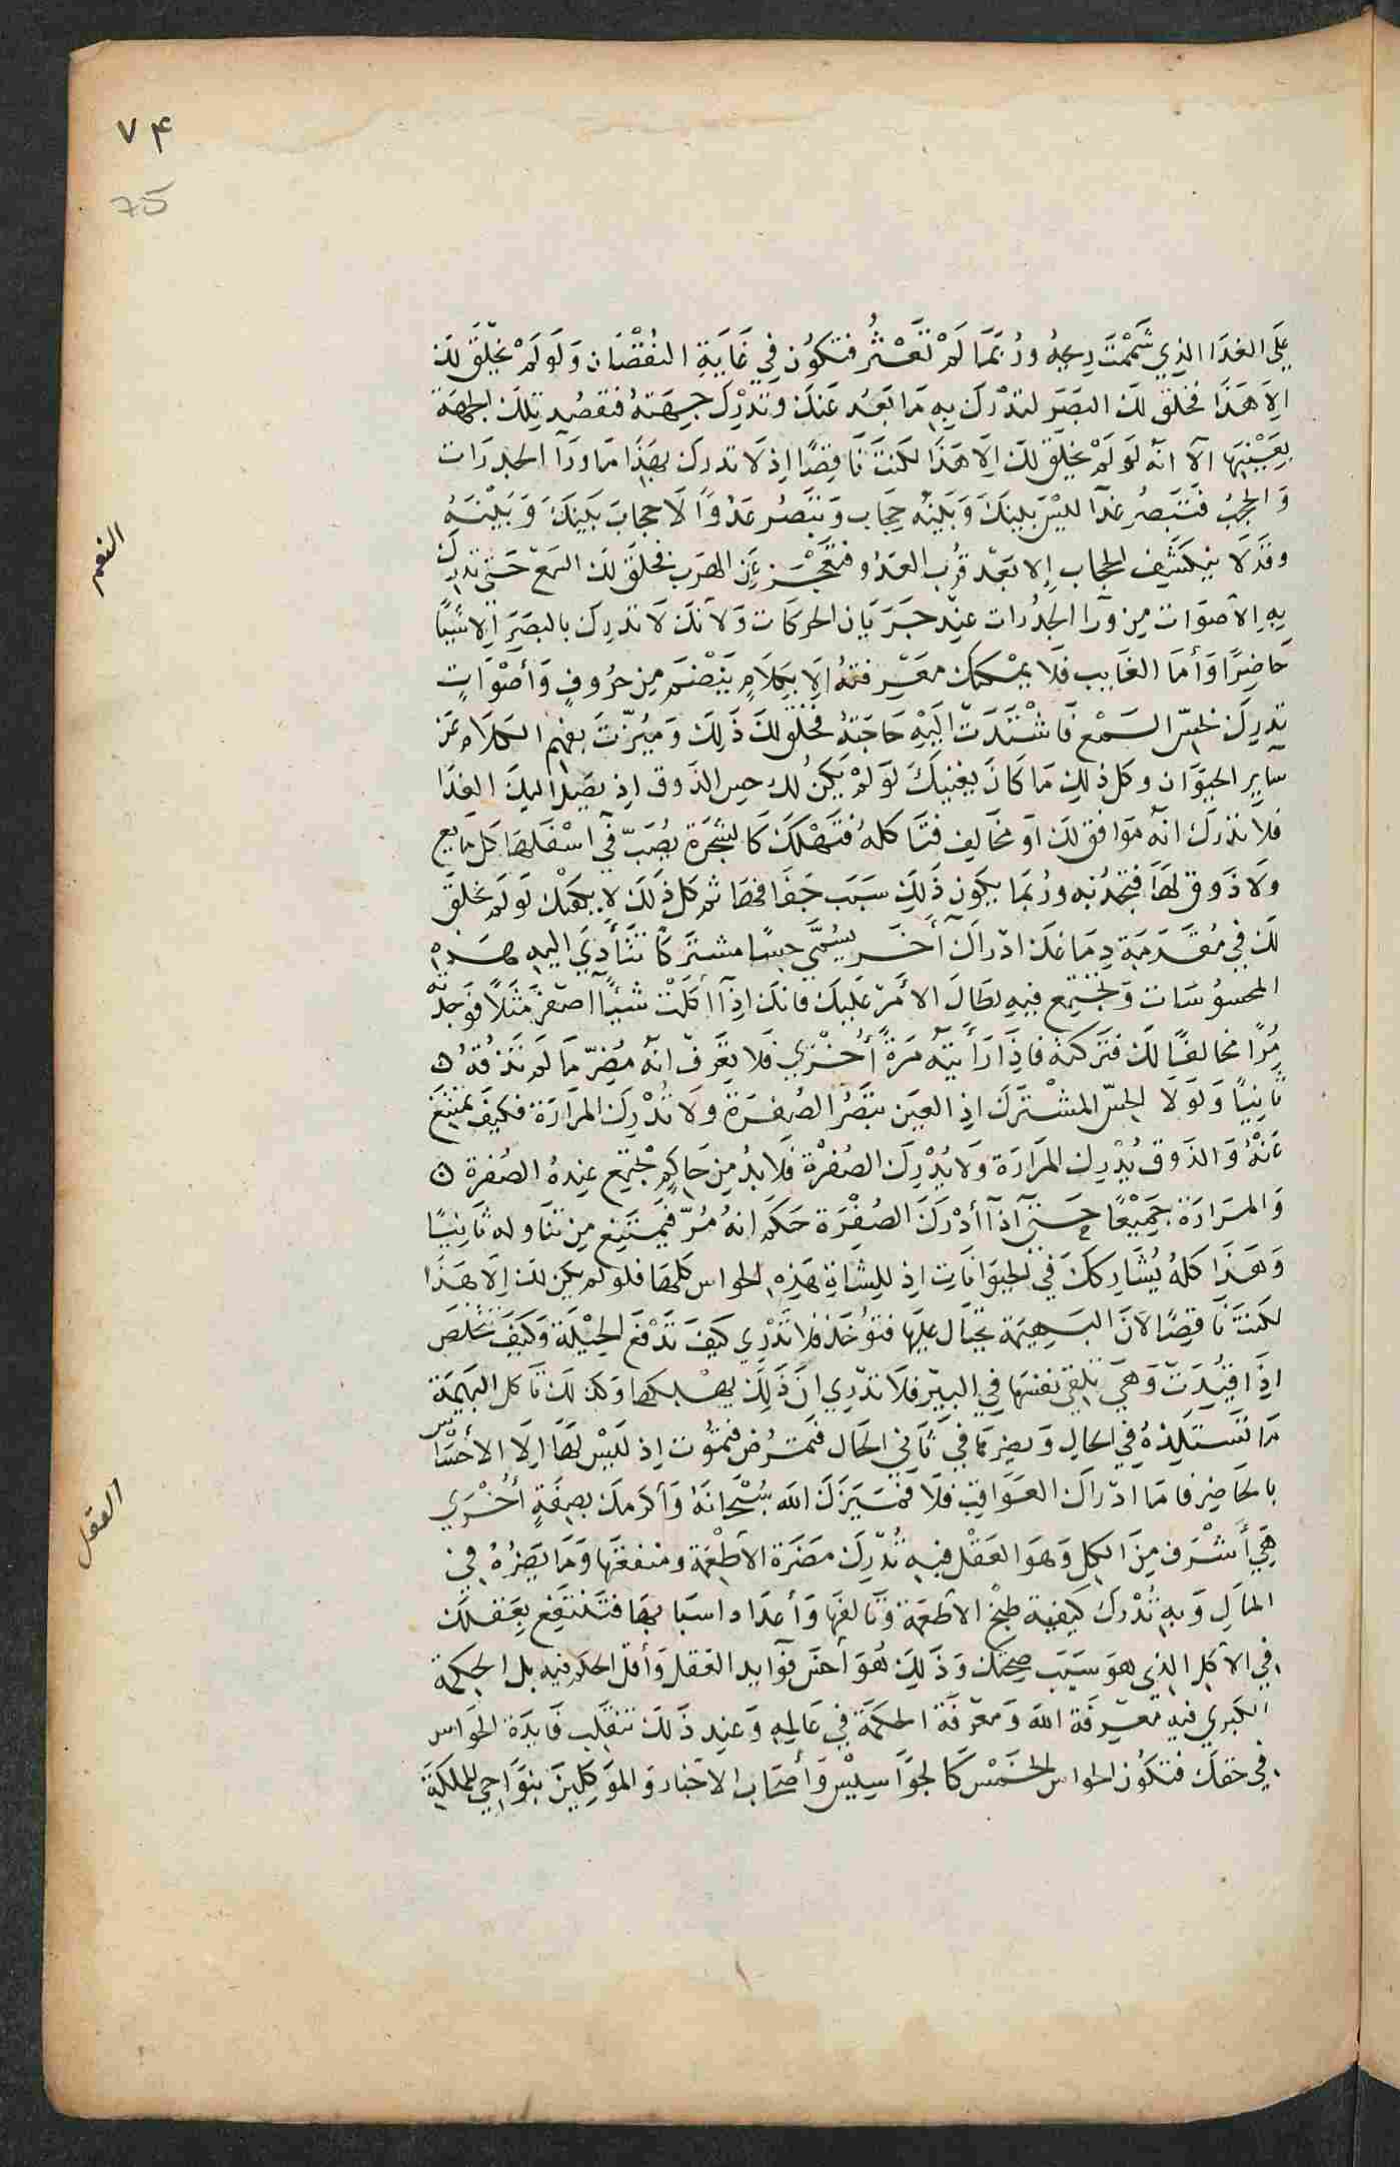 ٧۴
75
على الغدا الذي شممت ريحه وربما لم تعثر فتكون في غاية النقصان ولو لم يخلق لك
الا هذا فخلق لك البصر لتدرك به ما بعد عنك وتدرك جهته فتقصد تلك الجهة
بعينها الا انه لو لم يخلق لك الا هذا لكنت ناقصا اذ لا تدرك بهذا ما ورآ الجدرات
والحجب فتبصر غدآ ليس بينك وبينه حجاب وتبصر عدوا لا حجاب بينك وبينه
وقد لا ينكشف الحجاب الا بعد قرب العدو فتعجز عن الهرب فخلق لك السمع حتى تدرك
النعم
به الاصوات من ورآ الجدرات عند جريان الحركات ولانك لا تدرك بالبصر الا شيئا
حاضرا وأما الغايب فلا يمكنك معرفته الا بكلام ينضم من حروف وأصوات
تدرك بحس السمع فاشتدت اليه حاجته فخلق لك ذلك وميزت بفهم الكلام عن
ساير الحيوان وكل ذلك ما كان يغنيك لو لم يكن لك حس الذوق اذ يصل اليك الغدا
فلا تدرك انه موافق لك او مخالف فتاكله فتهلك كالشجرة يصب في اسفلها كل مايع
ولا ذوق لها فتجذبه وربما يكون ذلك سبب جفافها ثم كل ذلك لا يكفيك لو لم يخلق
لك في مقدمة دماغك ادراك آخر يسمى حسا مشتركا تتأدى اليه هذه
المحسوسات وتجتمع فيه لطال الامر عليك فانك اذا أكلت شيئا اصفر مثلا فوجدته
مرا مخالفا لك فتركته فاذا رأيته مرة أخرى فلا تعرف انه مضر ما لم تذقه
ثانيا ولولا الحس المشترك اذ العين تبصر الصفرة ولا تدرك المرارة فكيف تمتنع
عنه والذوق يدرك المرارة ولا يدرك الصفرة فلا بد من حاكم تجتمع عنده الصفرة
والمرارة جميعا حتى اذآ أدرك الصفرة حكم انه مر فيمتنع من تناوله ثانيا
وهذا كله يشاركك في الحيوانات اذ للشاة هذه الحواس كلها فلو لم يكن لك الا هذا
لكنت ناقصا لان البهيمة يحتال عليها فتؤخذ فلا تدري كيف تدفع الحيلة وكيف تتخلص
اذا قيدت وهي تلقي نفسها في البير فلا تدري ان ذلك يهلكها وكذلك تاكل البهيمة
ما تستلذه في الحال ويضرها في ثاني الحال فتمرض فتموت اذ ليس لها الا الأحساس
بالحاضر فاما ادراك العواقب فلا فميزك الله سبحانه وأكرمك بصفة أخرى
العقل
هي أشرف من الكل وهو العقل فيه تدرك مضرة الاطعمة ومنفعتها وما يضره في
المآل وبه تدرك كيفية طبخ الاطعمة وتالفها وأعداد اسبابها فتنتفع بعقلك
في الاكل الذي هو سبب صحتك وذلك هو أخس فوآيد العقل وأقل الحكم فيه بل الحكمة
الكبرى فيه معرفة الله ومعرفة الحكمة في عالمه وعند ذلك تنقلب فايدة الحواس
في حقك فتكون الحواس الخمس كالجواسيس وأصحاب الاخبار والموكلين بنواحي المملكة